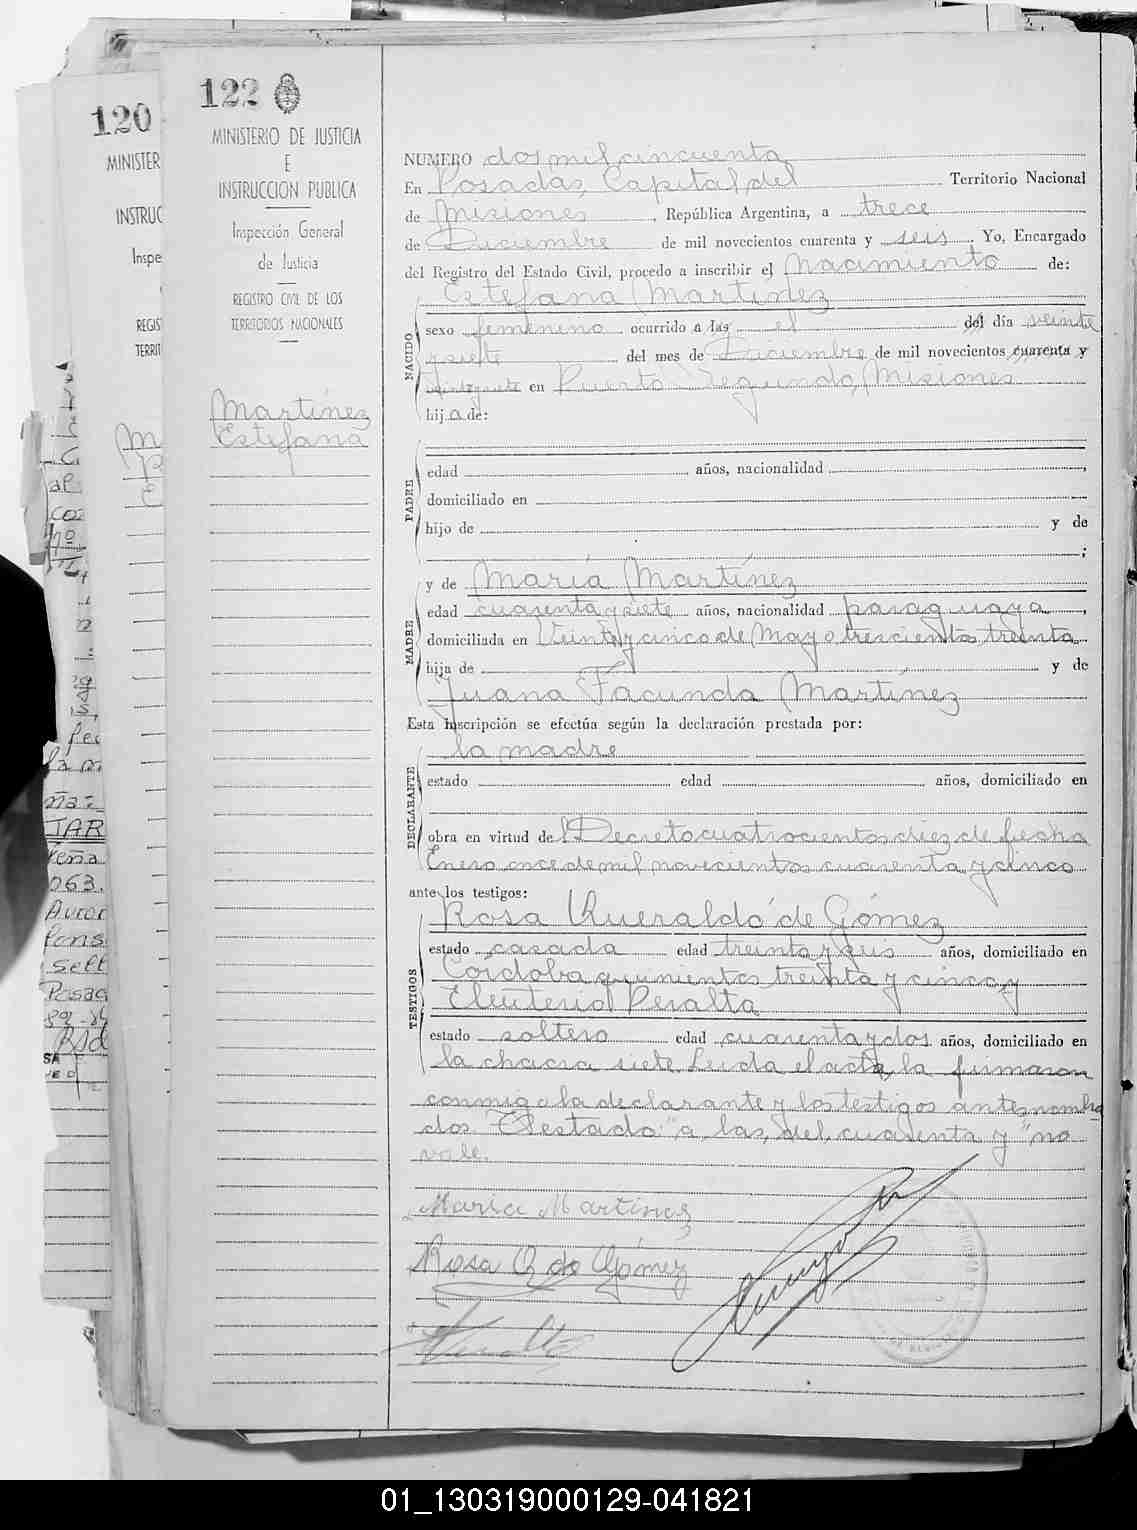 122
MINISTERIO DE JUSTICIA
E
INSTRUCCION PUBLICA
Inspección General
de Justicia
REGISTRO CIVIL DE LOS
TERRITORIOS NACIONALES
Martínez
Estefana
120
MINISTER
INSTRUC
Inspe
REGIS
TERRIT
NUMERO dos mil cincuenta
En Posadas, Capital del Territorio Nacional
de Misiones, República Argentina, a trece
de Diciembre de mil novecientos cuarenta y seis. Yo, Encargado
del Registro del Estado Civil, procedo a inscribir el nacimiento de:
Estefana Martínez
NACIDO
sexo femenino ocurrido a las el del día veinte
y siete del mes de Diciembre de mil novecientos cuarenta y
veintisiete en Puerto Segundo, Misiones
hija de:
PADRE
edad años, nacionalidad
domiciliado en
hijo de y de
;
MADRE
y de María Martínez
edad cuarenta y siete años, nacionalidad paraguaya,
domiciliada en Veinticinco de Mayo trescientos treinta
hija de y de
Juana Facunda Martínez
Esta inscripción se efectúa según la declaración prestada por:
DECLARANTE
la madre
estado edad años, domiciliado en
obra en virtud del Decreto cuatrocientos diez de fecha
Enero once de mil novecientos cuarenta y cinco
ante los testigos:
TESTIGOS
Rosa Queraldó de Gómez
estado casada edad treinta y seis años, domiciliado en
Córdoba quinientos treinta y cinco y
Eleuterio Peralta
estado soltero edad cuarenta y dos años, domiciliado en
la chacra siete. Leída el acta, la firmaron
conmigo la declarante y los testigos antes nombra
dos. Testado "a las, del, cuarenta y" no
vale.
María Martínez
Rosa Q de Gómez
Peralta
01_130319000129-041821